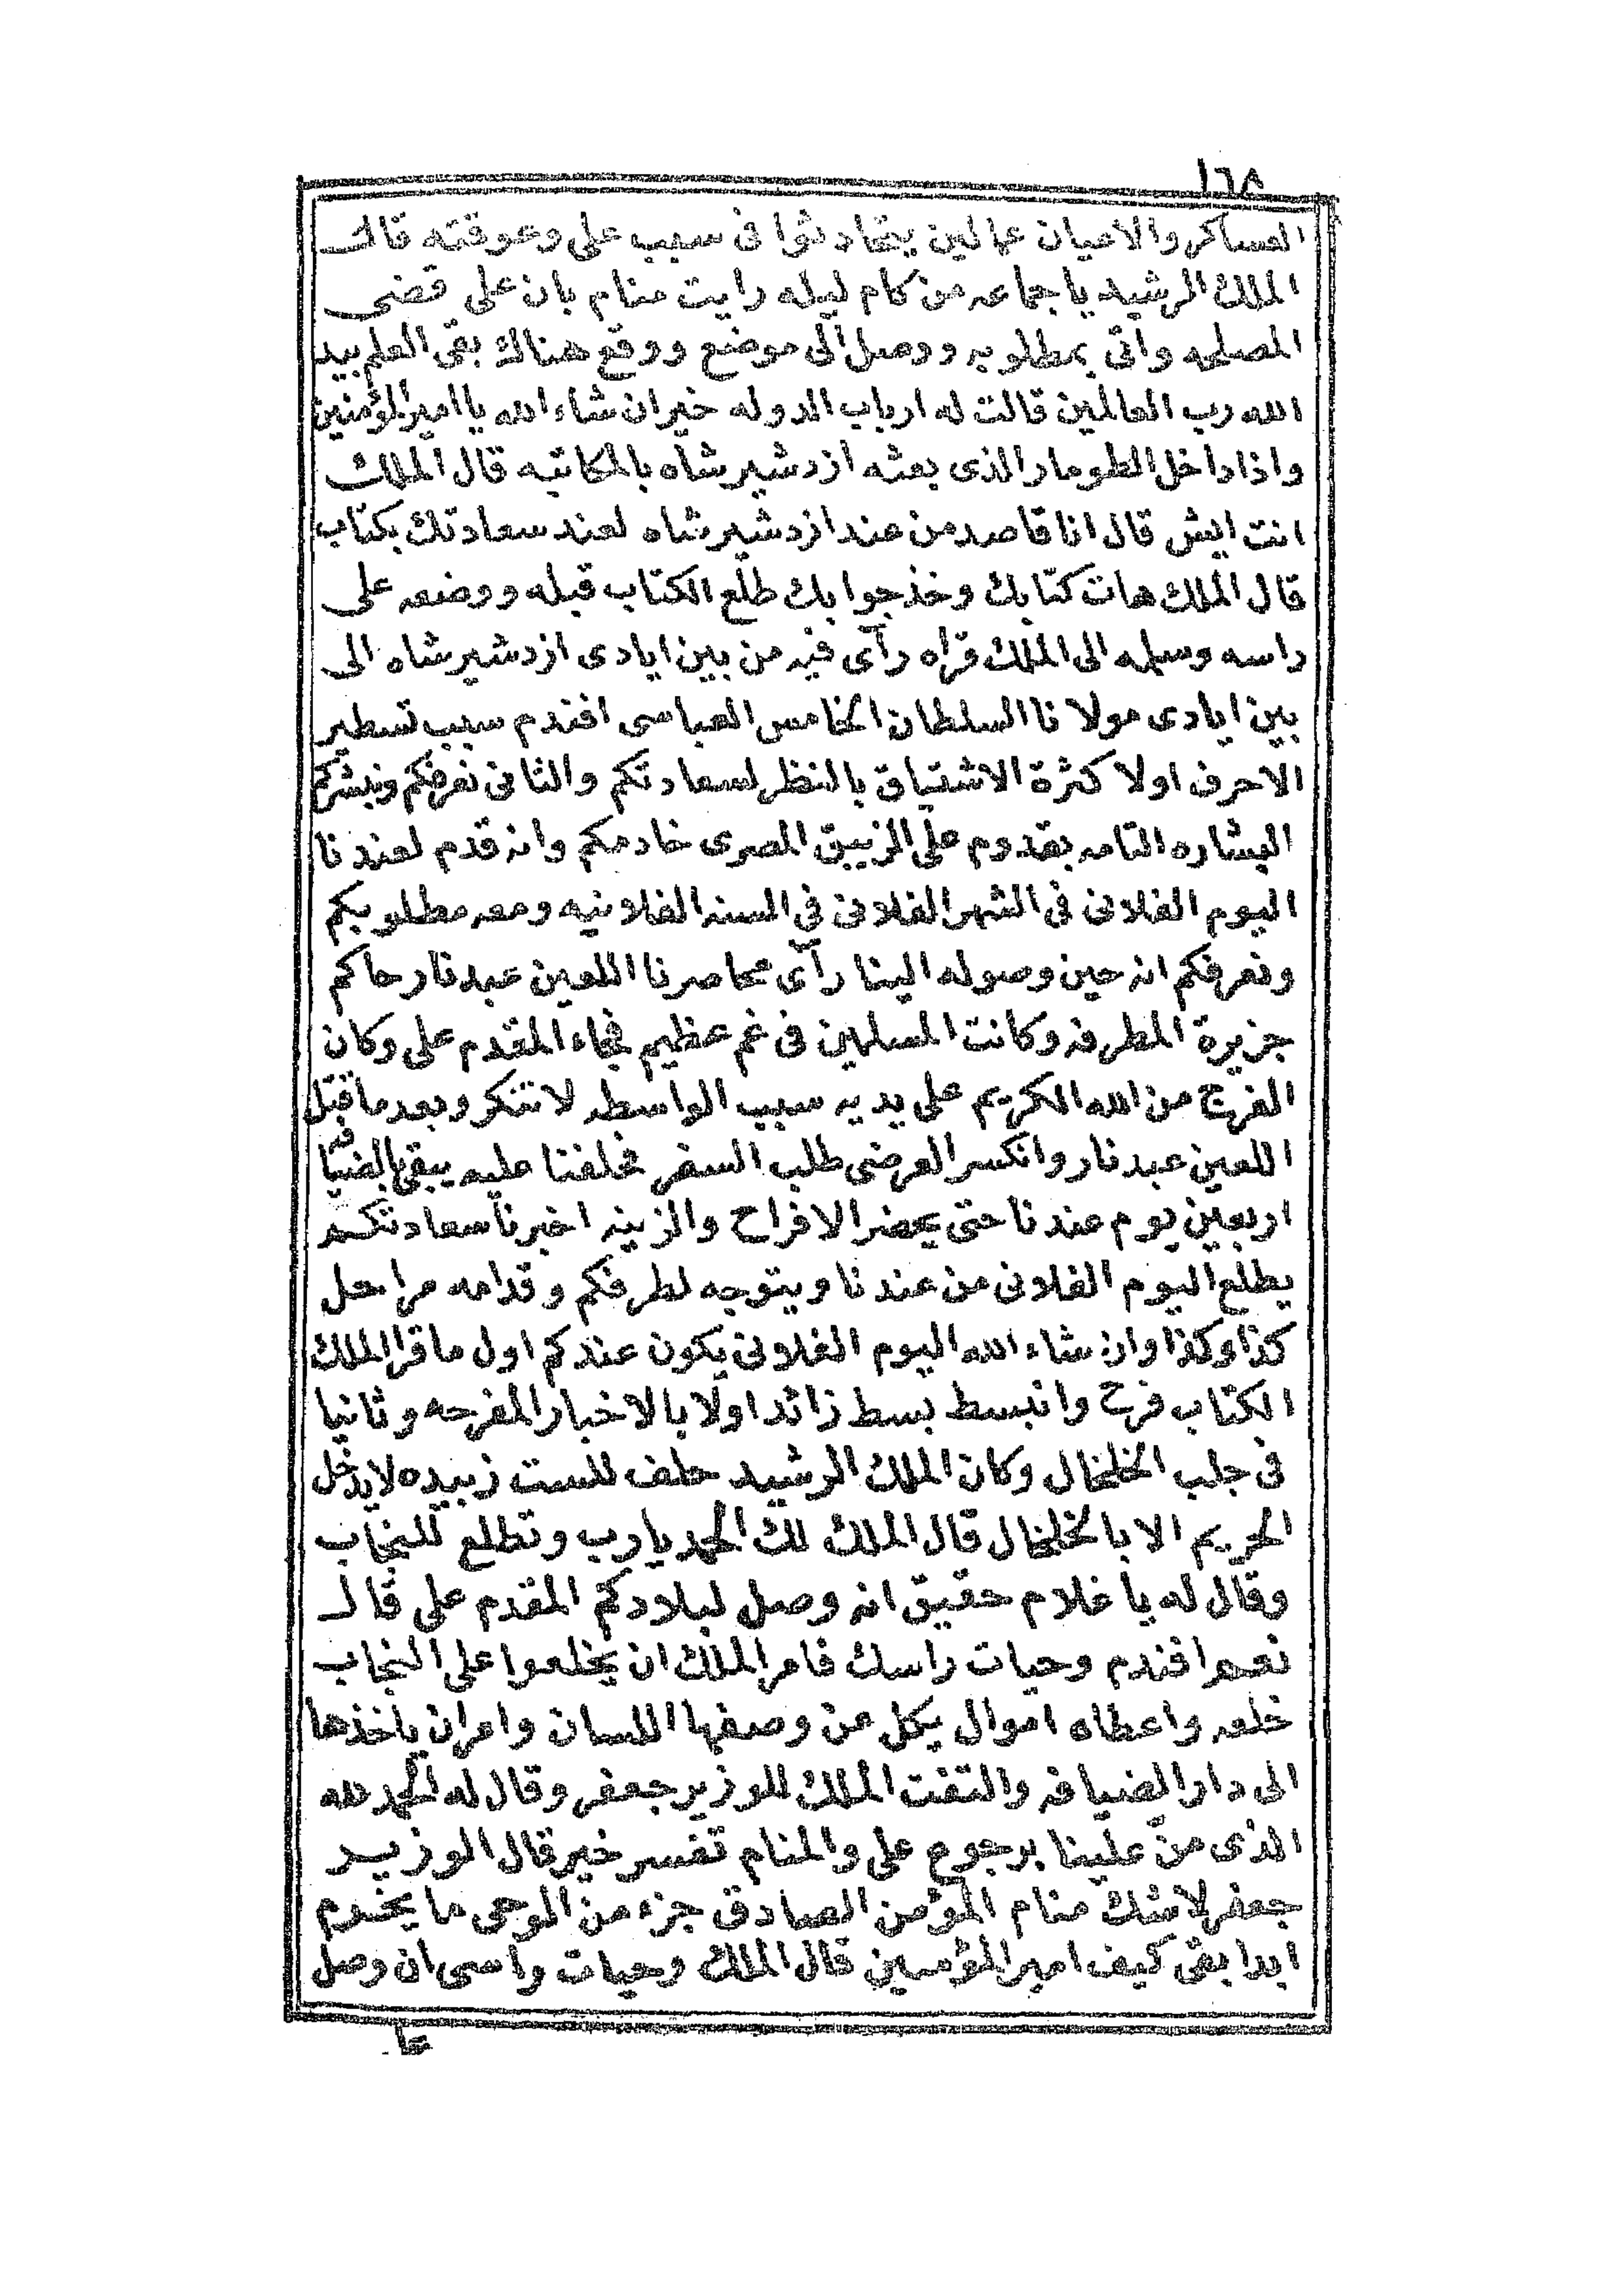 ١٦٨
العساكر والاعيان عمالين يتحادثوا فى سبب على وعوقته قال
الملك الرشيد يا جماعه من كام ليله رايت منام بان على قضى
المصلحه واتى بمطلوبه ووصل الى موضع ووقع هناك بقى العلم بيد
الله رب العالمين قالت له ارباب الدوله خير ان شاء الله يا امير المؤمنين
واذا داخل الطومار الذى بعثه ازدشير شاه بالمكاتبه قال الملك
انت ايش قال انا قاصد من عند ازدشير شاه لعند سعادتك بكتاب
قال الملك هات كتابك وخذ جوابك طلع الكتاب قبله ووضعه على
راسه وسلمه الى الملك قراه رآى فيه من بين ايادى ازدشير شاه الى
بين ايادى مولانا السلطان الخامس العباسى افندم سبب تسطير
الاحرف اولا كثرة الاشتياق بالنظر لسعادتكم والثانى نعرفكم ونبشركم
البشاره التامه بقدوم على الزيبق المصرى خادمكم وانه قدم لعندنا
اليوم الفلانى فى الشهر الفلانى فى السنه الفلانيه ومعه مطلوبكم
ونعرفكم انه حين وصوله الينا رآى محاصرنا اللعين عبد نار حاكم
جزيرة المطرفه وكانت المسلمين فى غم عظيم فجاء المقدم على وكان
الفرج من الله الكريم على يديه سبب الواسطه لا تنكر وبعد ما قتل
اللعين عبد نار وانكسر العرضى طلب السفر فحلفنا عليه يبقى بالضيافه
اربعين يوم عندنا حتى يحضر الافراح والزينه اخبرنا سعادتكم
يطلع اليوم الفلانى من عندنا ويتوجه لطرفكم وقدامه مراحل
كذا وكذا وان شاء الله اليوم الفلانى يكون عندكم اول ما قرا الملك
الكتاب فرح وانبسط بسط زائد اولا بالاخبار المفرحه وثانيا
فى جلب الخلخال وكان الملك الرشيد حلف للست زبيده لا يدخل
الحريم الا بالخلخال قال الملك لك الحمد يا رب وتطلع للنجاب
وقال له يا غلام حقيق انه وصل لبلادكم المقدم على قال
نعم افندم وحيات راسك فامر الملك ان يخلعوا على النجاب
خلعه واعطاه اموال يكل عن وصفها اللسان وامر ان ياخذها
الى دار الضيافه والتفت الملك للوزير جعفر وقال له الحمد لله
الذى منّ علينا برجوع على والمنام تفسر خير قال الوزير
جعفر لا شك منام المؤمن الصادق جزء من الوحى ما يخرم
ابدا بقى كيف امير المؤمنين قال الملك وحيات راسى ان وصل
على